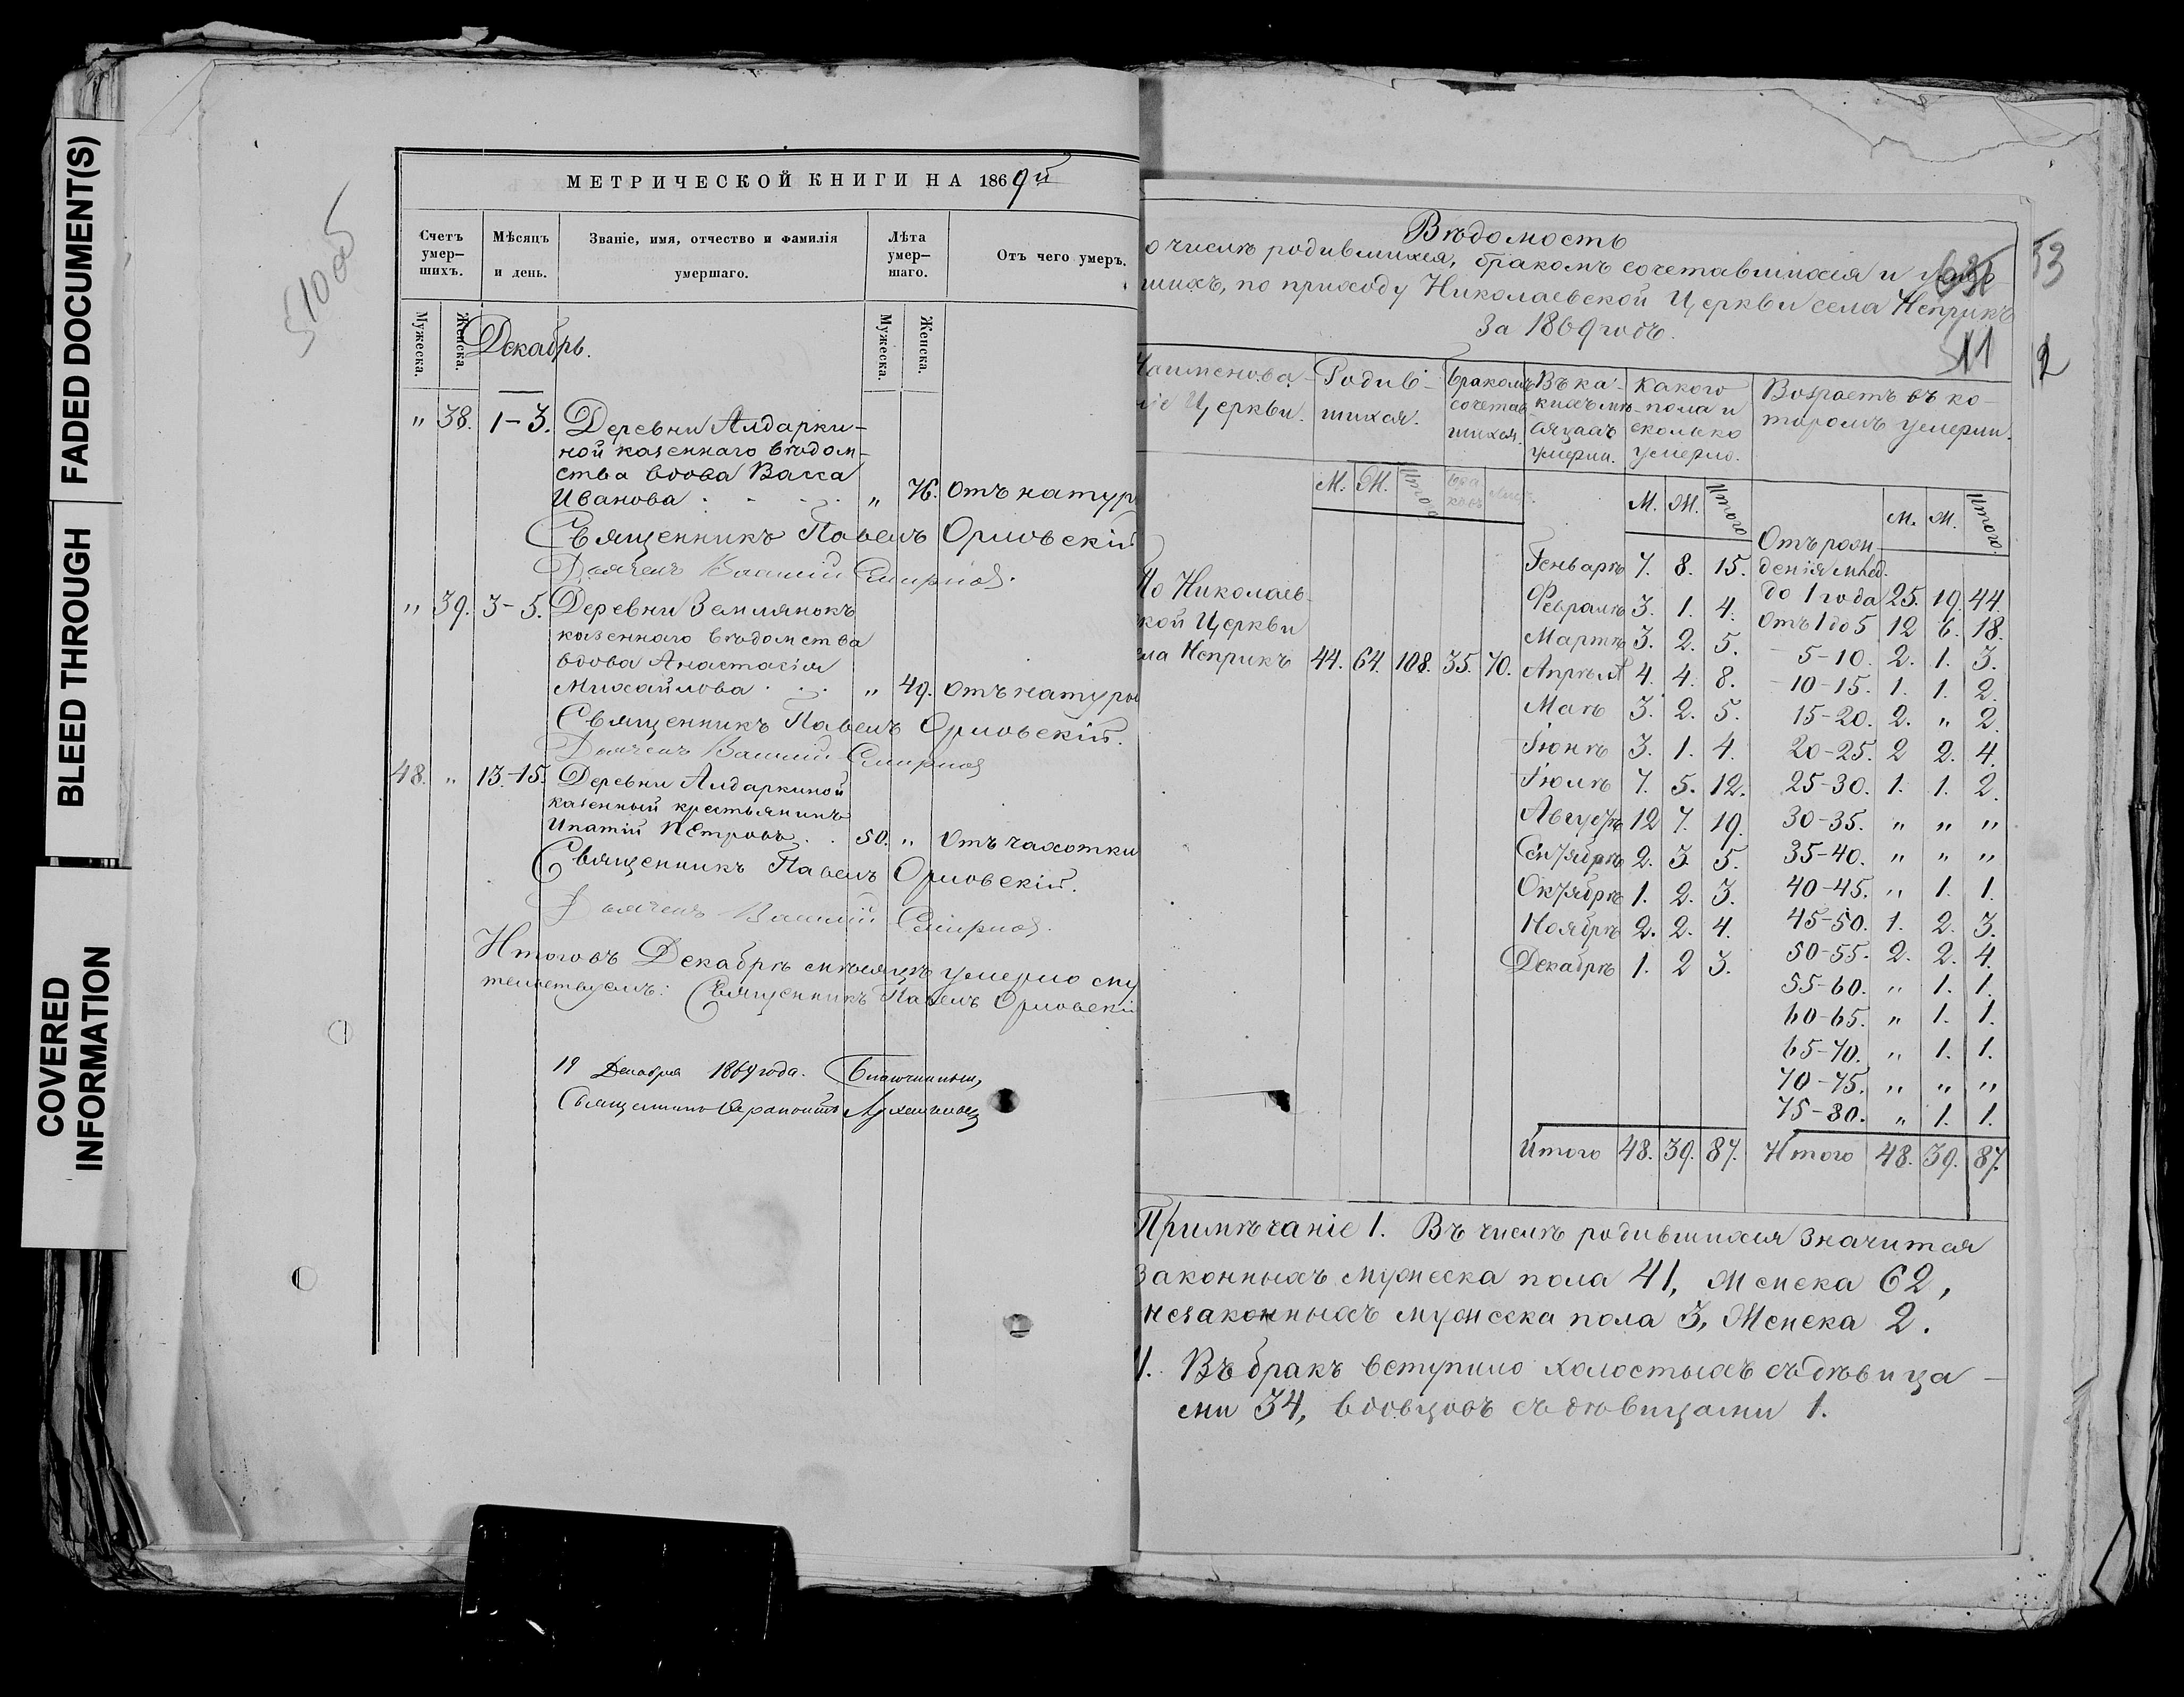 FADED DOCUMENT(S)
BLEED THROUGH
COVERED
INFORMATION
510об
МЕТРИЧЕСКОЙ КНИГИ НА 1869й
Счетъ умер-шихъ.
Мѣсяцъ и день.
Званіе, имя, отчество и фамилія умершаго.
Лѣта умер-шаго.
Отъ чего умеръ.
Мужеска.
Женска.
Декабрь.
Мужеска.
Женска.
" 38. 1-3. Деревни Алдарки-
ной казеннаго вѣдом-
ства вдова Васса
Иванова " 76. Отъ натур
Священникъ Павелъ Орловскій
Дьячекъ Василій Смирнов
" 39. 3-5. Деревни Землянокъ
казеннаго вѣдомства
вдова Анастасія
Михайлова " 49. Отъ натуры
Священникъ Павелъ Орловскій.
Дьячекъ Василій Смирнов
48. " 13-15. Деревни Алдаркиной
казенный крестьянинъ
Ипатій Петровъ 50. " Отъ чахотки
Священникъ Павелъ Орловскій.
Дьячекъ Василій Смирнов
Итого въ Декабрѣ мѣсяцѣ умерло
Священникъ Павелъ Орловскі
19 Декабря 1869 года. Благочинный,
Священникъ
Вѣдомость
о числѣ родившихся, бракомъ сочетавшихся и умер
шихъ, по приходу Николаевской Церкви села Неприкъ
За 1869 годъ.
53
511
2
Наименова-
ніе Церкви.
Родив-
шихся.
Бракомъ
сочетав
шихся.
Въ ка-
кихъ мѣ-
сяцахъ
умерли.
Какого
пола и
сколько
умерло.
Возрастъ въ ко-
торомъ умерли.
М. Ж. Итого
М. Ж. Итого
М. Ж. Итого.
По Николаев-
кой Церкви
ела Неприкъ 44. 64. 108. 35. 70.
Генварѣ 7. 8. 15.
Февралѣ 3. 1. 4.
Мартѣ 3. 2. 5.
Апрѣл 4. 4. 8.
Маѣ 3. 2. 5.
Іюнѣ 3. 1. 4.
Іюлѣ 7. 5. 12.
Августѣ 12 7. 19.
Сентябрѣ 2. 3. 5.
Октябрѣ 1. 2. 3.
Ноябрѣ 2. 2. 4.
Декабрѣ 1. 2 3.
Итого 48. 39. 87.
Отъ рож-
денія млад.
до 1 года 25. 19. 44.
Отъ 1 до 5 12 6. 18.
5-10. 2. 1. 3.
10-15. 1. 1. 2.
15-20. 2. " 2
20-25. 2 2. 4.
25-30. 1. 1. 2.
30-35. " " "
35-40. " " "
40-45. " 1. 1.
45-50. 1. 2. 3.
50-55. 2. 2. 4.
55-60. " 1. 1.
60-65. " 1. 1.
65-70. " 1. 1.
70-75. " " "
75-80. " 1. 1.
Итого 48. 39. 87.
Примѣчаніе 1. Въ числѣ родившихся значится
законныхъ мужеска пола 41, женска 62,
незаконныхъ мужеска пола 3, женска 2.
Въ бракъ вступило холостыхъ съ дѣвица-
ми 34, вдовцовъ съ дѣвицами 1.